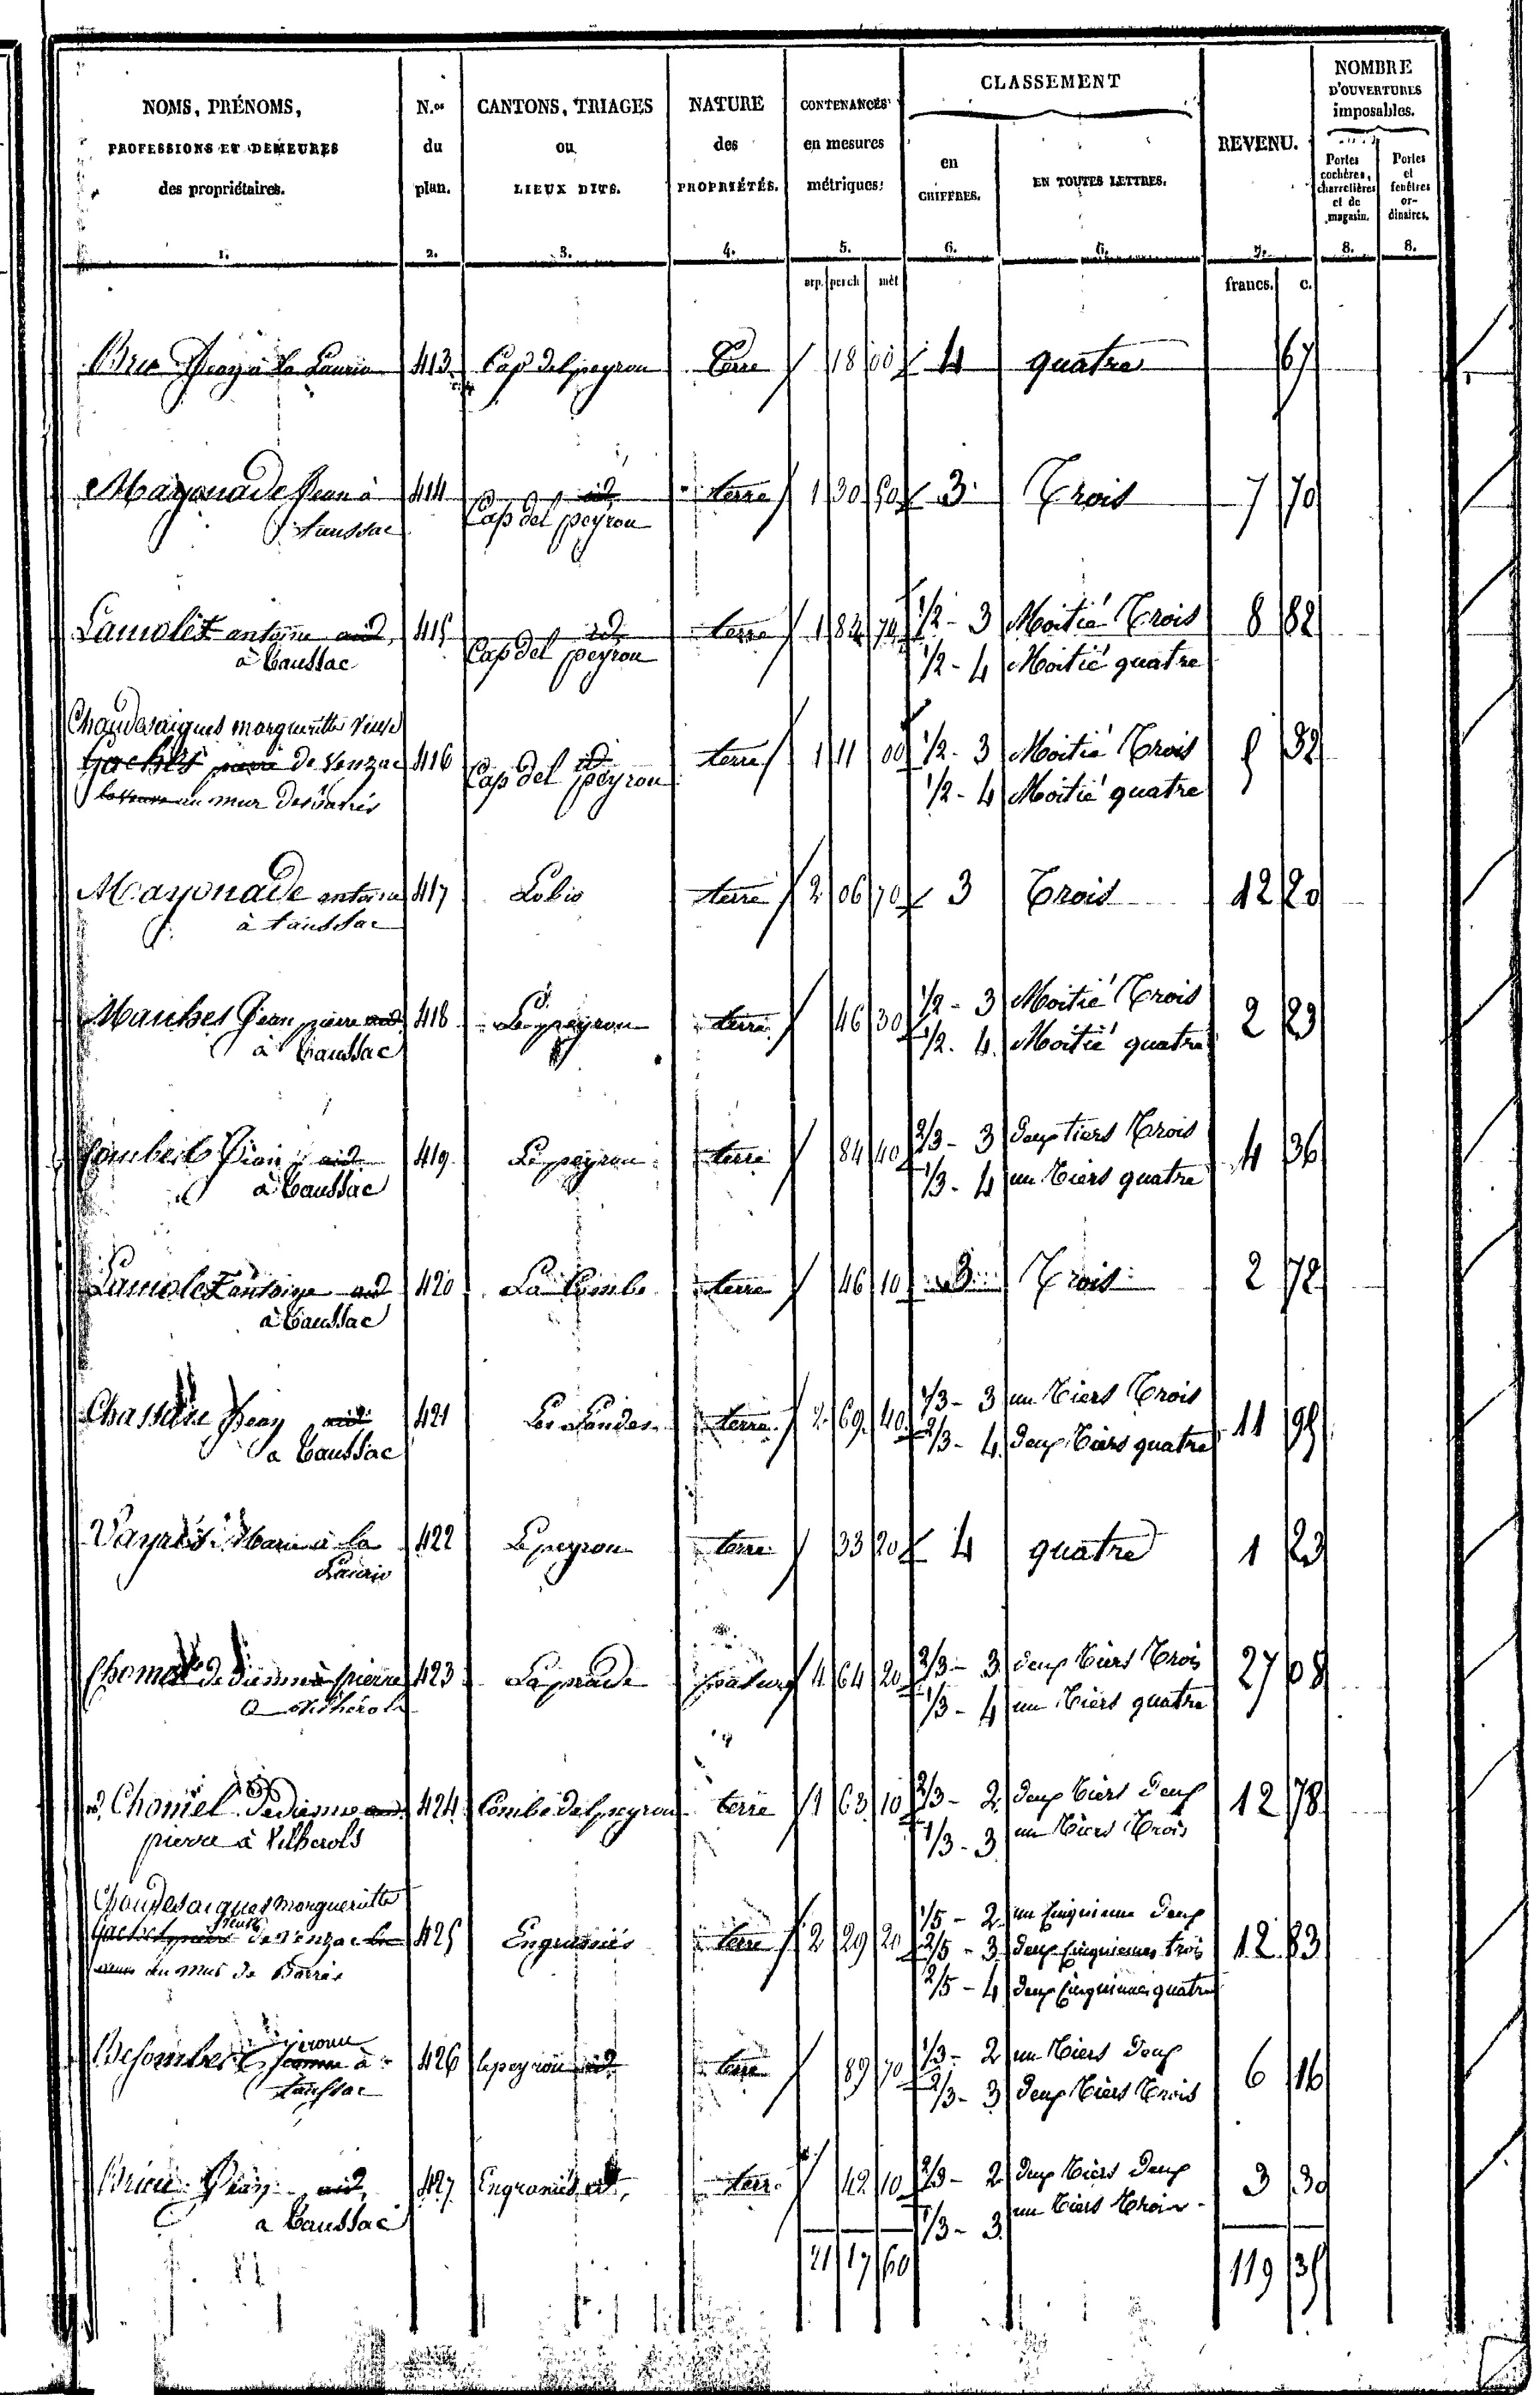 NOMS, PRÉNOMS, PROFESSIONS ET DEMEURES des propriétaires. N.os du plan. CANTONS, TRIAGES ou LIEUX DITS. NATURE des PROPRIÉTÉS. CONTENANCES en mesures métriques. CLASSEMENT en CHIFFRES. EN TOUTES LETTRES. REVENU. NOMBRE D'OUVERTURES imposables. Portes cochères, charretières et de magasin. Portes et fenêtres or-dinaires.
1. 2. 3. 4. 5. 6. 6. 7. 8. 8.
arp. perch mèt francs. c.
Jean à la 413 Cap del peyrou Terre 18 00 4 quatre 67
Mayonade Jean à 414 id terre 1 30 50 3 Trois 7 70
taussac Cap del peyrou
Lamolet antoine aud 415 id terre 1 82 70 1/2 - 3 Moitié Trois 8 82
à Taussac Cap del peyrou 1/2 - 4 Moitié quatre
Chaudesaigues margueritte veuve
Gaches pierre de Venzac 416 id terre 1 11 00 1/2 - 3 Moitié Trois 5 32
la veuve au mur de barrés Cap del peyrou 1/2 - 4 Moitié quatre
Mayonade antoine 417 terre 2 06 70 3 Trois 12 20
à taussac
Jean pierre aud 418 Le peyrou terre 46 30 1/2 - 3 Moitié Trois 2 23
à Taussac 1/2 - 4 Moitié quatre
Jean aud 419 Le peyrou terre 84 40 2/3 - 3 deux tiers Trois 4 36
à Taussac 1/3 - 4 un Tiers quatre
Lamolet antoine aud 420 La Combe terre 46 10 3 Trois 2 72
à Taussac
Jean aud 421 Les Landes terre 2 69 40 1/3 - 3 un Tiers Trois 11 95
a Taussac 2/3 - 4 deux Tiers quatre
Vayres Marie à la 422 Le peyrou terre 33 20 4 quatre 1 23
Chomel de dienne à pierre 423 La prade pature 4 64 20 2/3 - 3 deux Tiers Trois 27 08
1/3 - 4 un Tiers quatre
Chomel De Dienne aud 424 Combe del peyrou terre 1 63 10 2/3 - 2 deux Tiers Deux 12 78
pierre à Vilherols 1/3 - 3 un Tiers Trois
Chaudesaigues margueritte
veuve
Gaches pierre de Venzac la 425 terre 2 29 20 1/5 - 2 un Cinquieme Deux 12 83
veuve au mur de Barrés 2/5 - 3 deux Cinquiemes trois
2/5 - 4 deux Cinquiemes quatre
Besombes à 426 le peyrou id terre 89 70 1/3 - 2 un Tiers Deux 6 16
taussac 2/3 - 3 Deux Tiers Trois
Jean aud 427 id terre 42 10 2/3 - 2 Deux Tiers Deux 3 30
a Taussac 1/3 - 3 un Tiers Trois
21 17 60 119 35